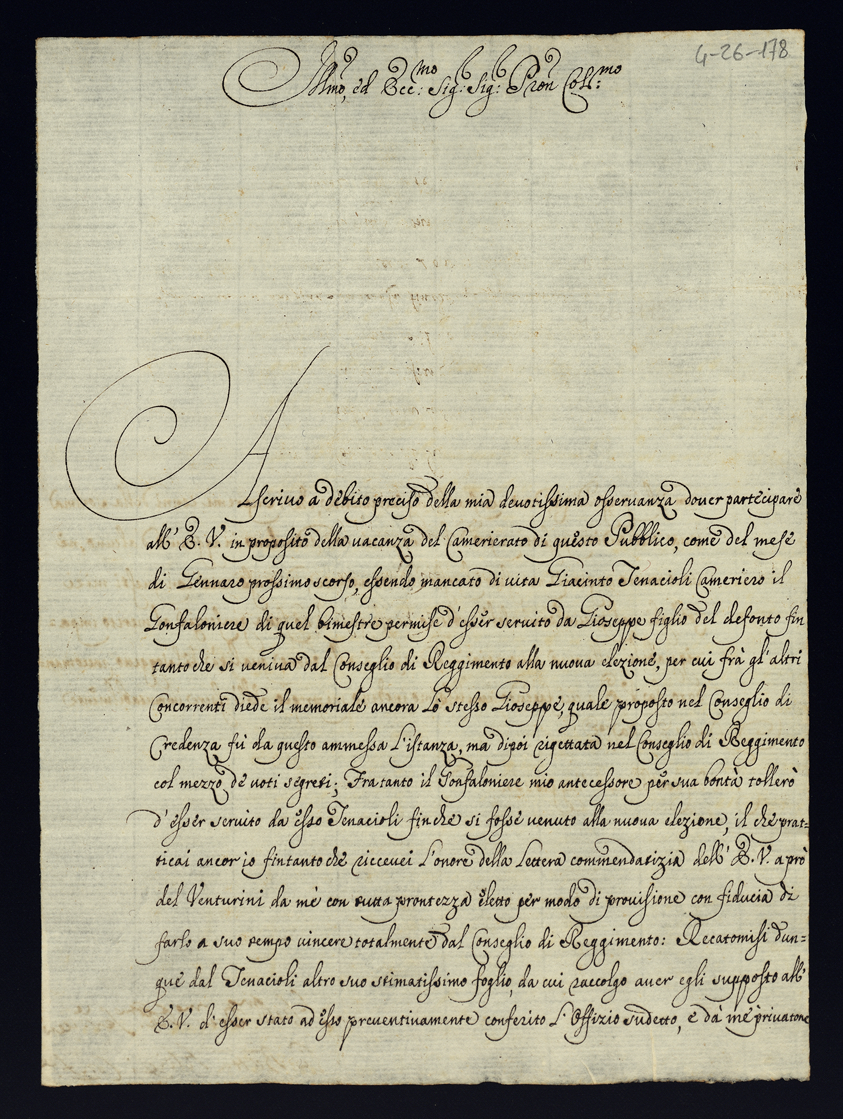 4-26-178
Illmo, ed Ecc:mo Sig: Sig: Pron Coll:mo
Ascrivo a debito preciso della mia devotissima osservanza dover partecipare
all' E. V. in proposito della vacanza del Camerierato di questo Pubblico, come del mese
di Gennaro prossimo scorso, essendo mancato di vita Giacinto Tenacioli Cameriero il
Gonfaloniere di quel bimestre permise d'esser servito da Gioseppe figlio del defonto fin
tanto che si veniva dal Conseglio di Reggimento alla nuova elezione, per cui frà gl'altri
Concorrenti diede il memoriale ancora lo stesso Gioseppe, quale proposto nel Conseglio di
Credenza fù da questo ammessa l'istanza, ma dipoi rigettata nel Conseglio di Reggimento
col mezzo de voti segreti; Fra tanto il Gonfaloniere mio antecessore per sua bontà tollerò
d'esser servito da esso Tenacioli finche si fosse venuto alla nuova elezione, il che prat-
ticai ancor io fintanto che riccevei l'onore della Lettera commendatizia dell' E. V. a prò
del Venturini da mè con tutta prontezza eletto per modo di provisione con fiducia di
farlo a suo tempo vincere totalmente dal Conseglio di Reggimento: Recatomisi dun=
que dal Tenacioli altro suo stimatissimo foglio, da cui raccolgo aver egli supposto all'
E. V. d'esser stato ad esso preventivamente conferito l'Offizio sudetto, e dà mè privatone